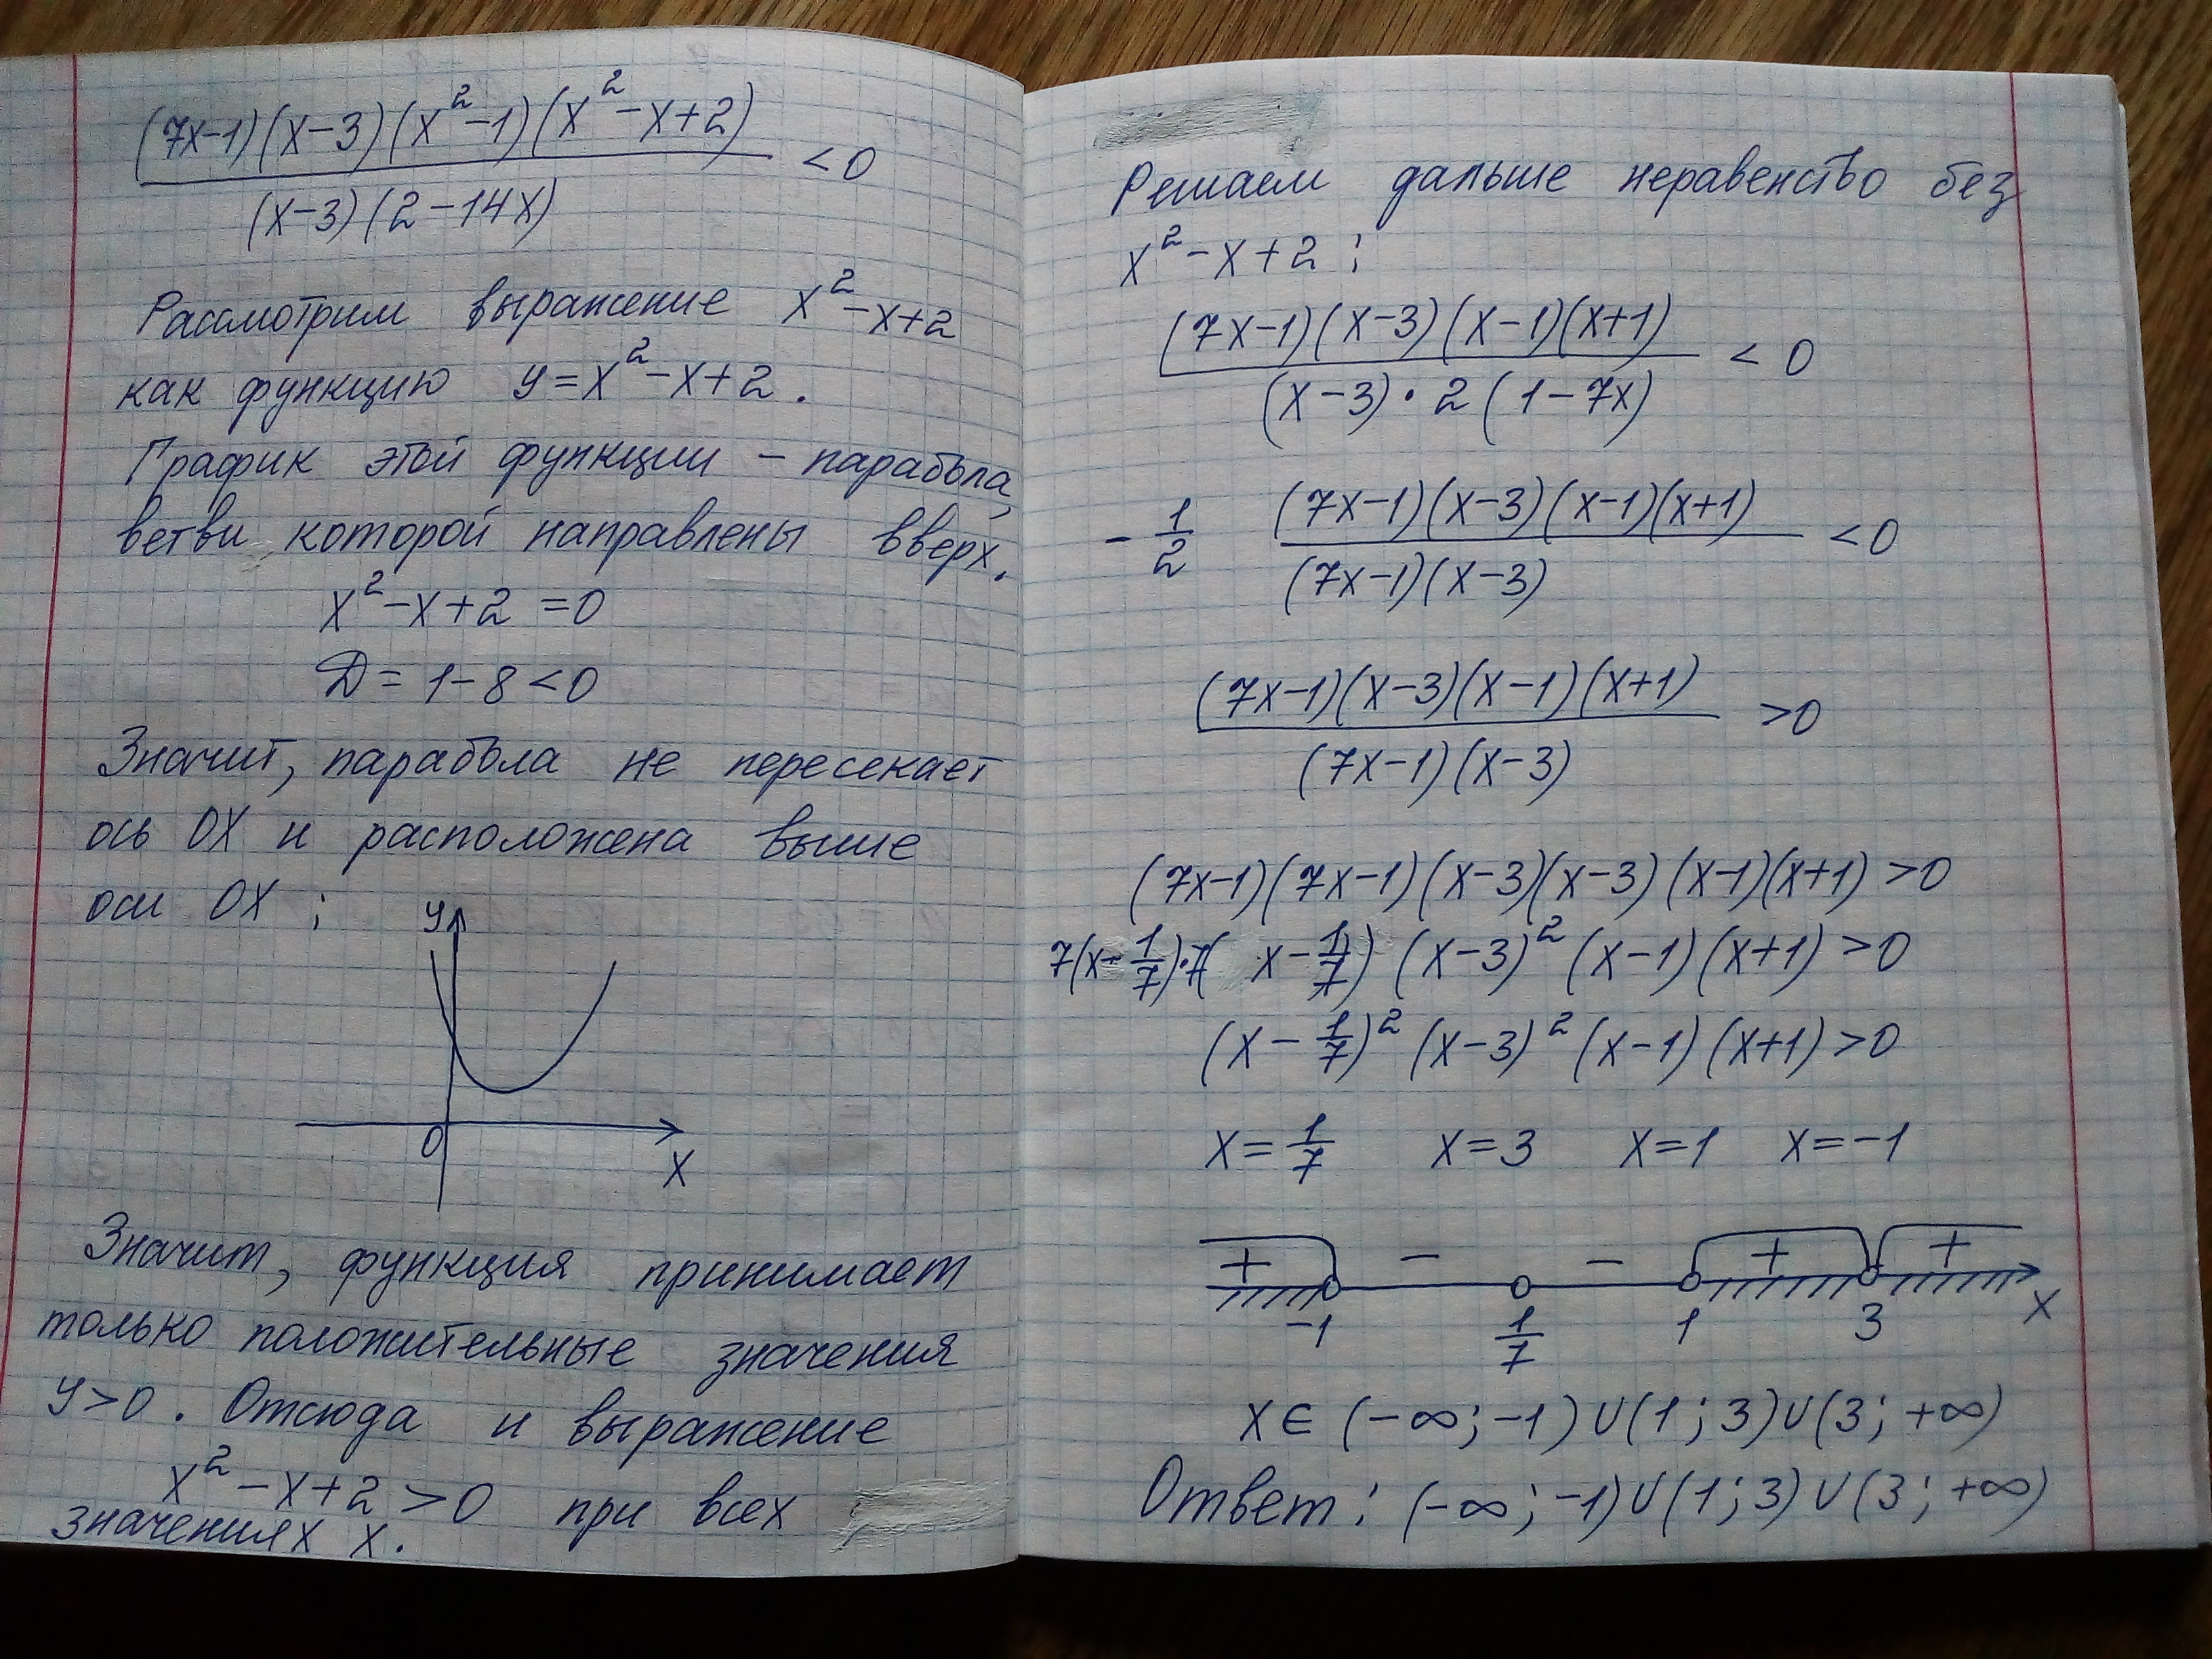 (7x-1)(x-3)(x²-1)(x²-x+2)
(x-3)(2-14x)
<0
Рассмотрим выражение x²-x+2
как функцию y=x²-x+2.
График этой функции - парабола,
ветви которой направлены вверх.
x²-x+2=0
D=1-8<0
Значит, парабола не пересекает
ось OX и расположена выше
оси OX:
y
0
x
Значит, функция принимает
только положительные значения
y>0. Отсюда и выражение
x²-x+2>0 при всех
значениях x.
Решаем дальше неравенство без
x²-x+2:
(7x-1)(x-3)(x-1)(x+1)
(x-3)·2(1-7x)
<0
-1/2 (7x-1)(x-3)(x-1)(x+1)
(7x-1)(x-3)
<0
(7x-1)(x-3)(x-1)(x+1)
(7x-1)(x-3)
>0
(7x-1)(7x-1)(x-3)(x-3)(x-1)(x+1)>0
7(x-1/7)·7(x-1/7)(x-3)²(x-1)(x+1)>0
(x-1/7)²(x-3)²(x-1)(x+1)>0
x=1/7 x=3 x=1 x=-1
+ - - + +
-1 1/7 1 3 x
x∈(-∞;-1)∪(1;3)∪(3;+∞)
Ответ: (-∞;-1)∪(1;3)∪(3;+∞)